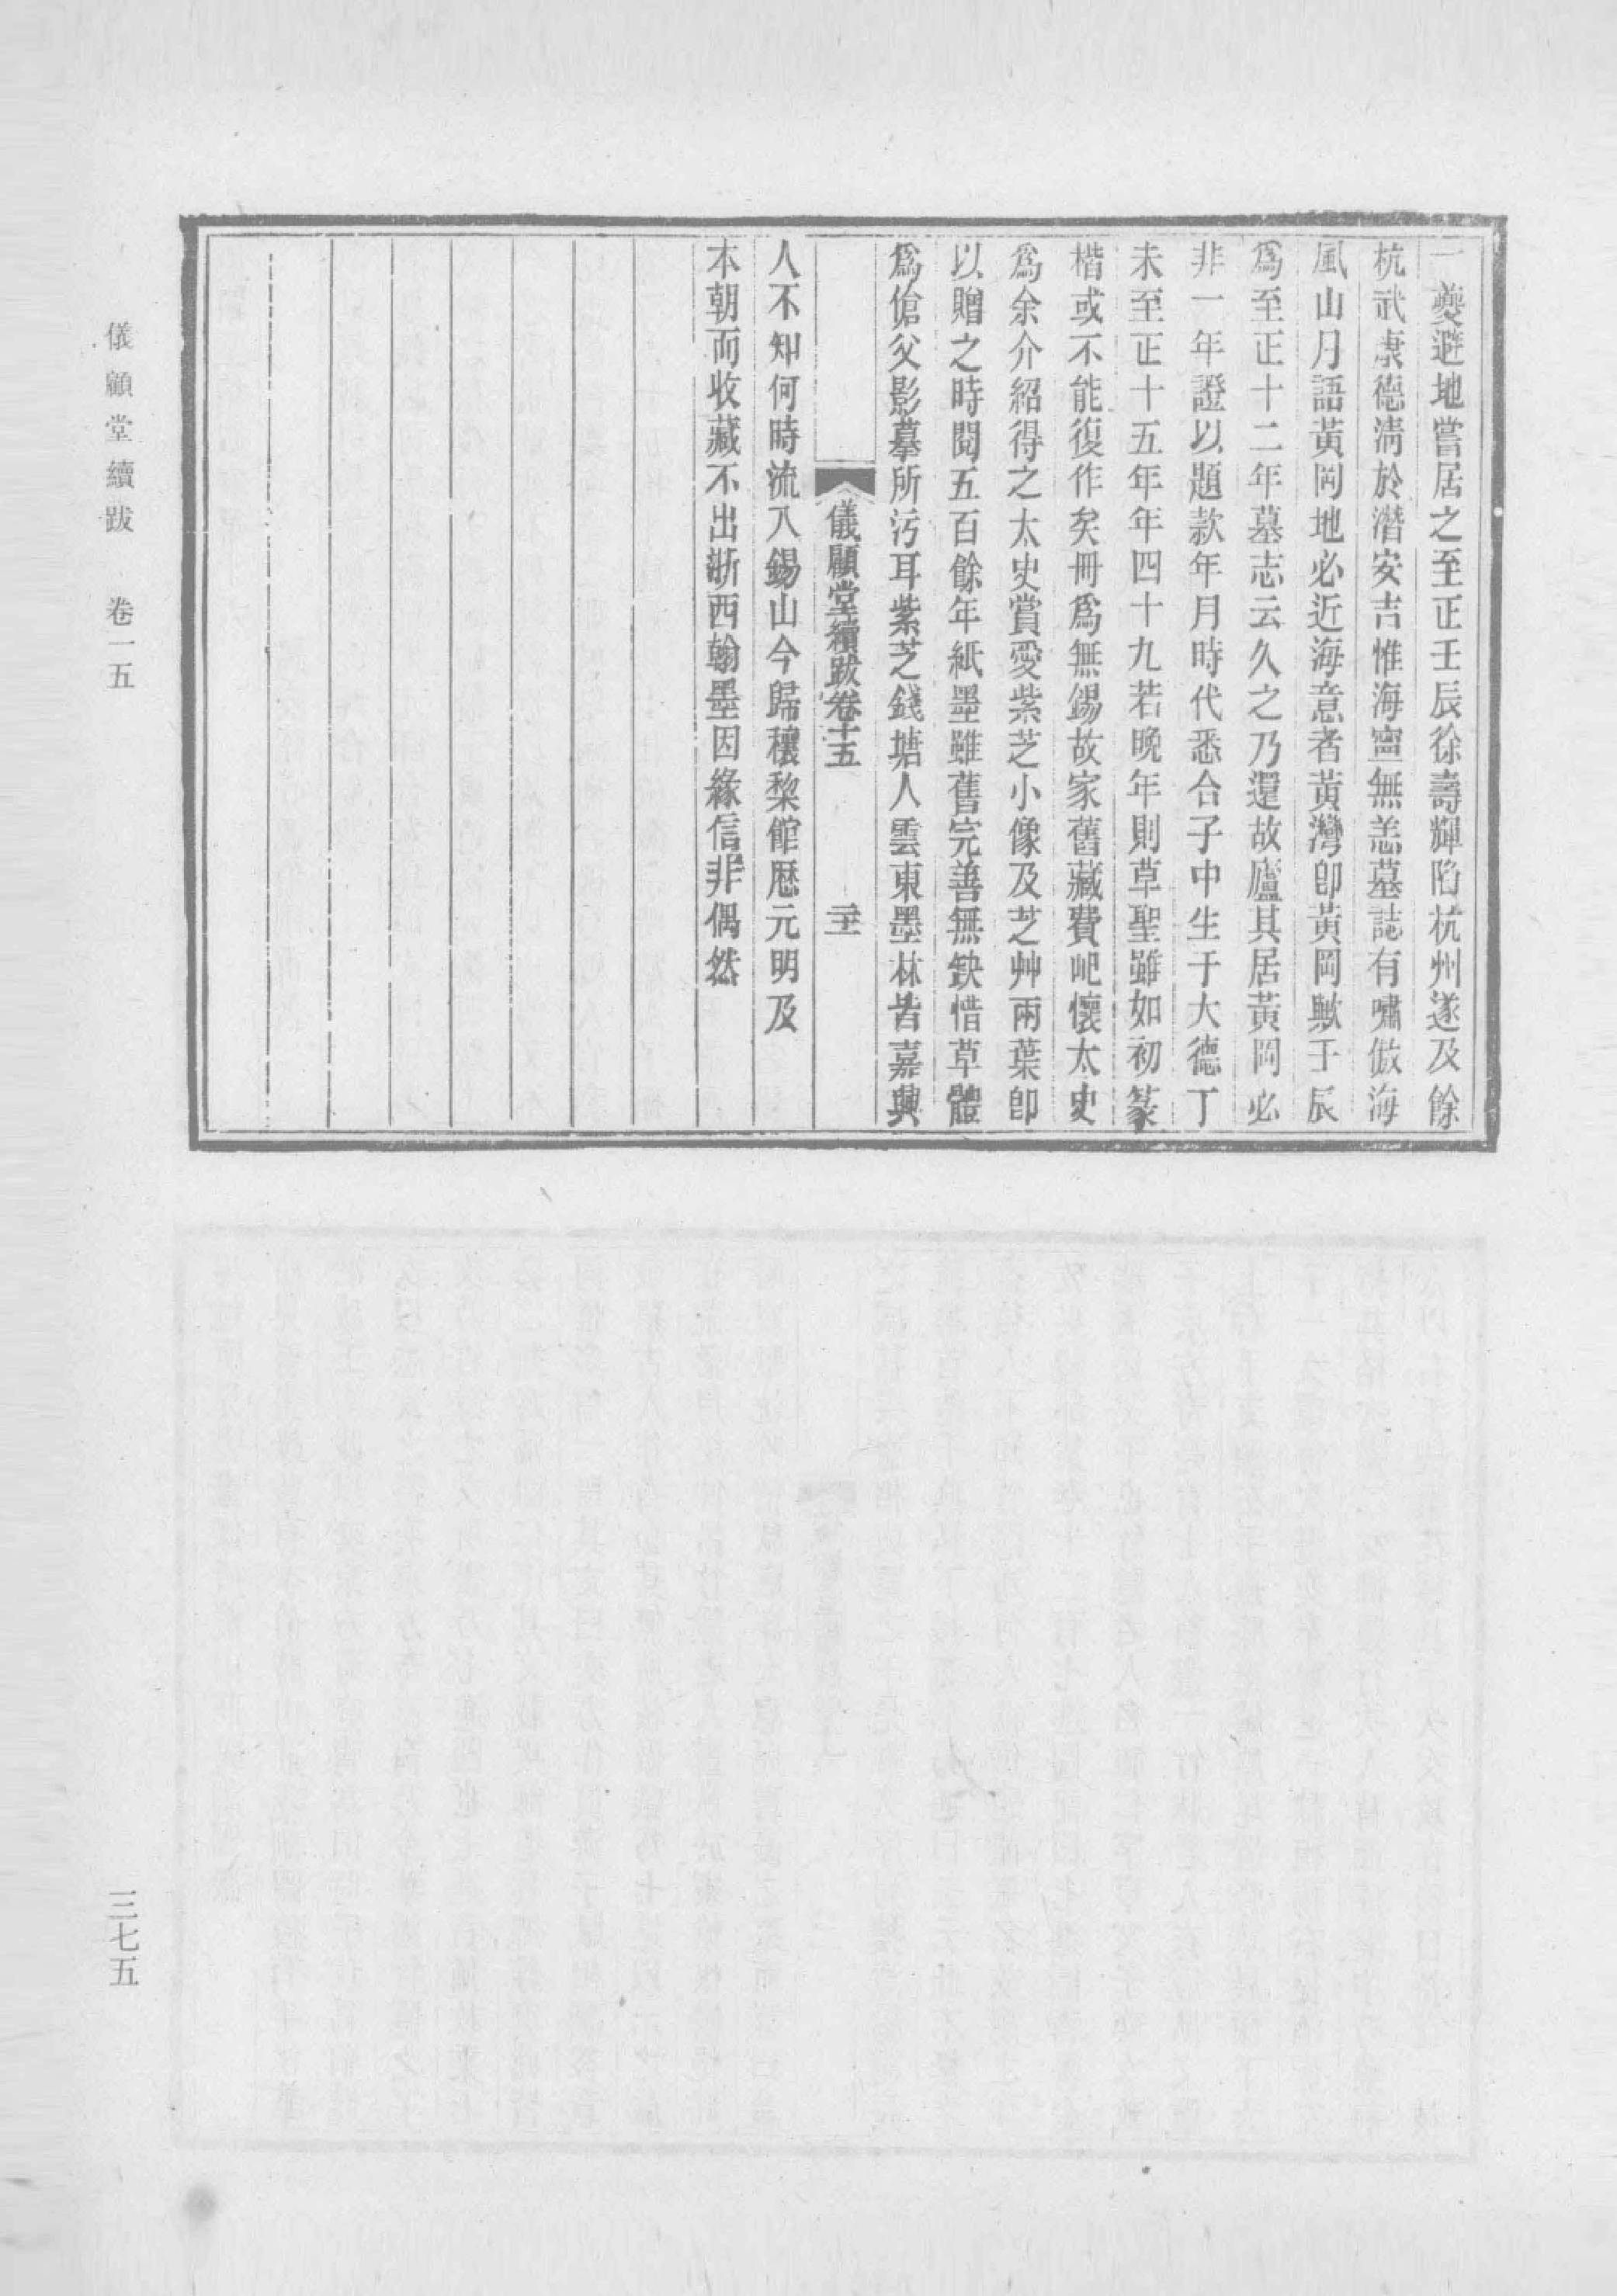 一夔避地嘗居之至正壬辰徐壽輝陷杭州遂及餘
杭武康德清於潛安吉惟海寧無恙墓誌有嘯傲海
風山月語黃岡地必近海意者黃灣卽黃岡歟壬辰
爲至正十二年墓志云久之乃還故廬其居黃岡必
非一年證以題款年月時代悉合子中生于大德丁
未至正十五年年四十九若晚年則草聖雖如初篆
楷或不能復作矣冊爲無錫故家舊藏費屺懷太史
爲余介紹得之太史賞愛紫芝小像及芝艸兩葉卽
以贈之時閱五百餘年紙墨雖舊完善無缺惜草體
爲傖父影摹所污耳紫芝錢塘人雲東墨林皆嘉興
儀顧堂續跋卷十五
人不知何時流入錫山今歸穰棃館歷元明及
本朝而收藏不出浙西翰墨因緣信非偶然
儀顧堂續跋 卷一五
三七五